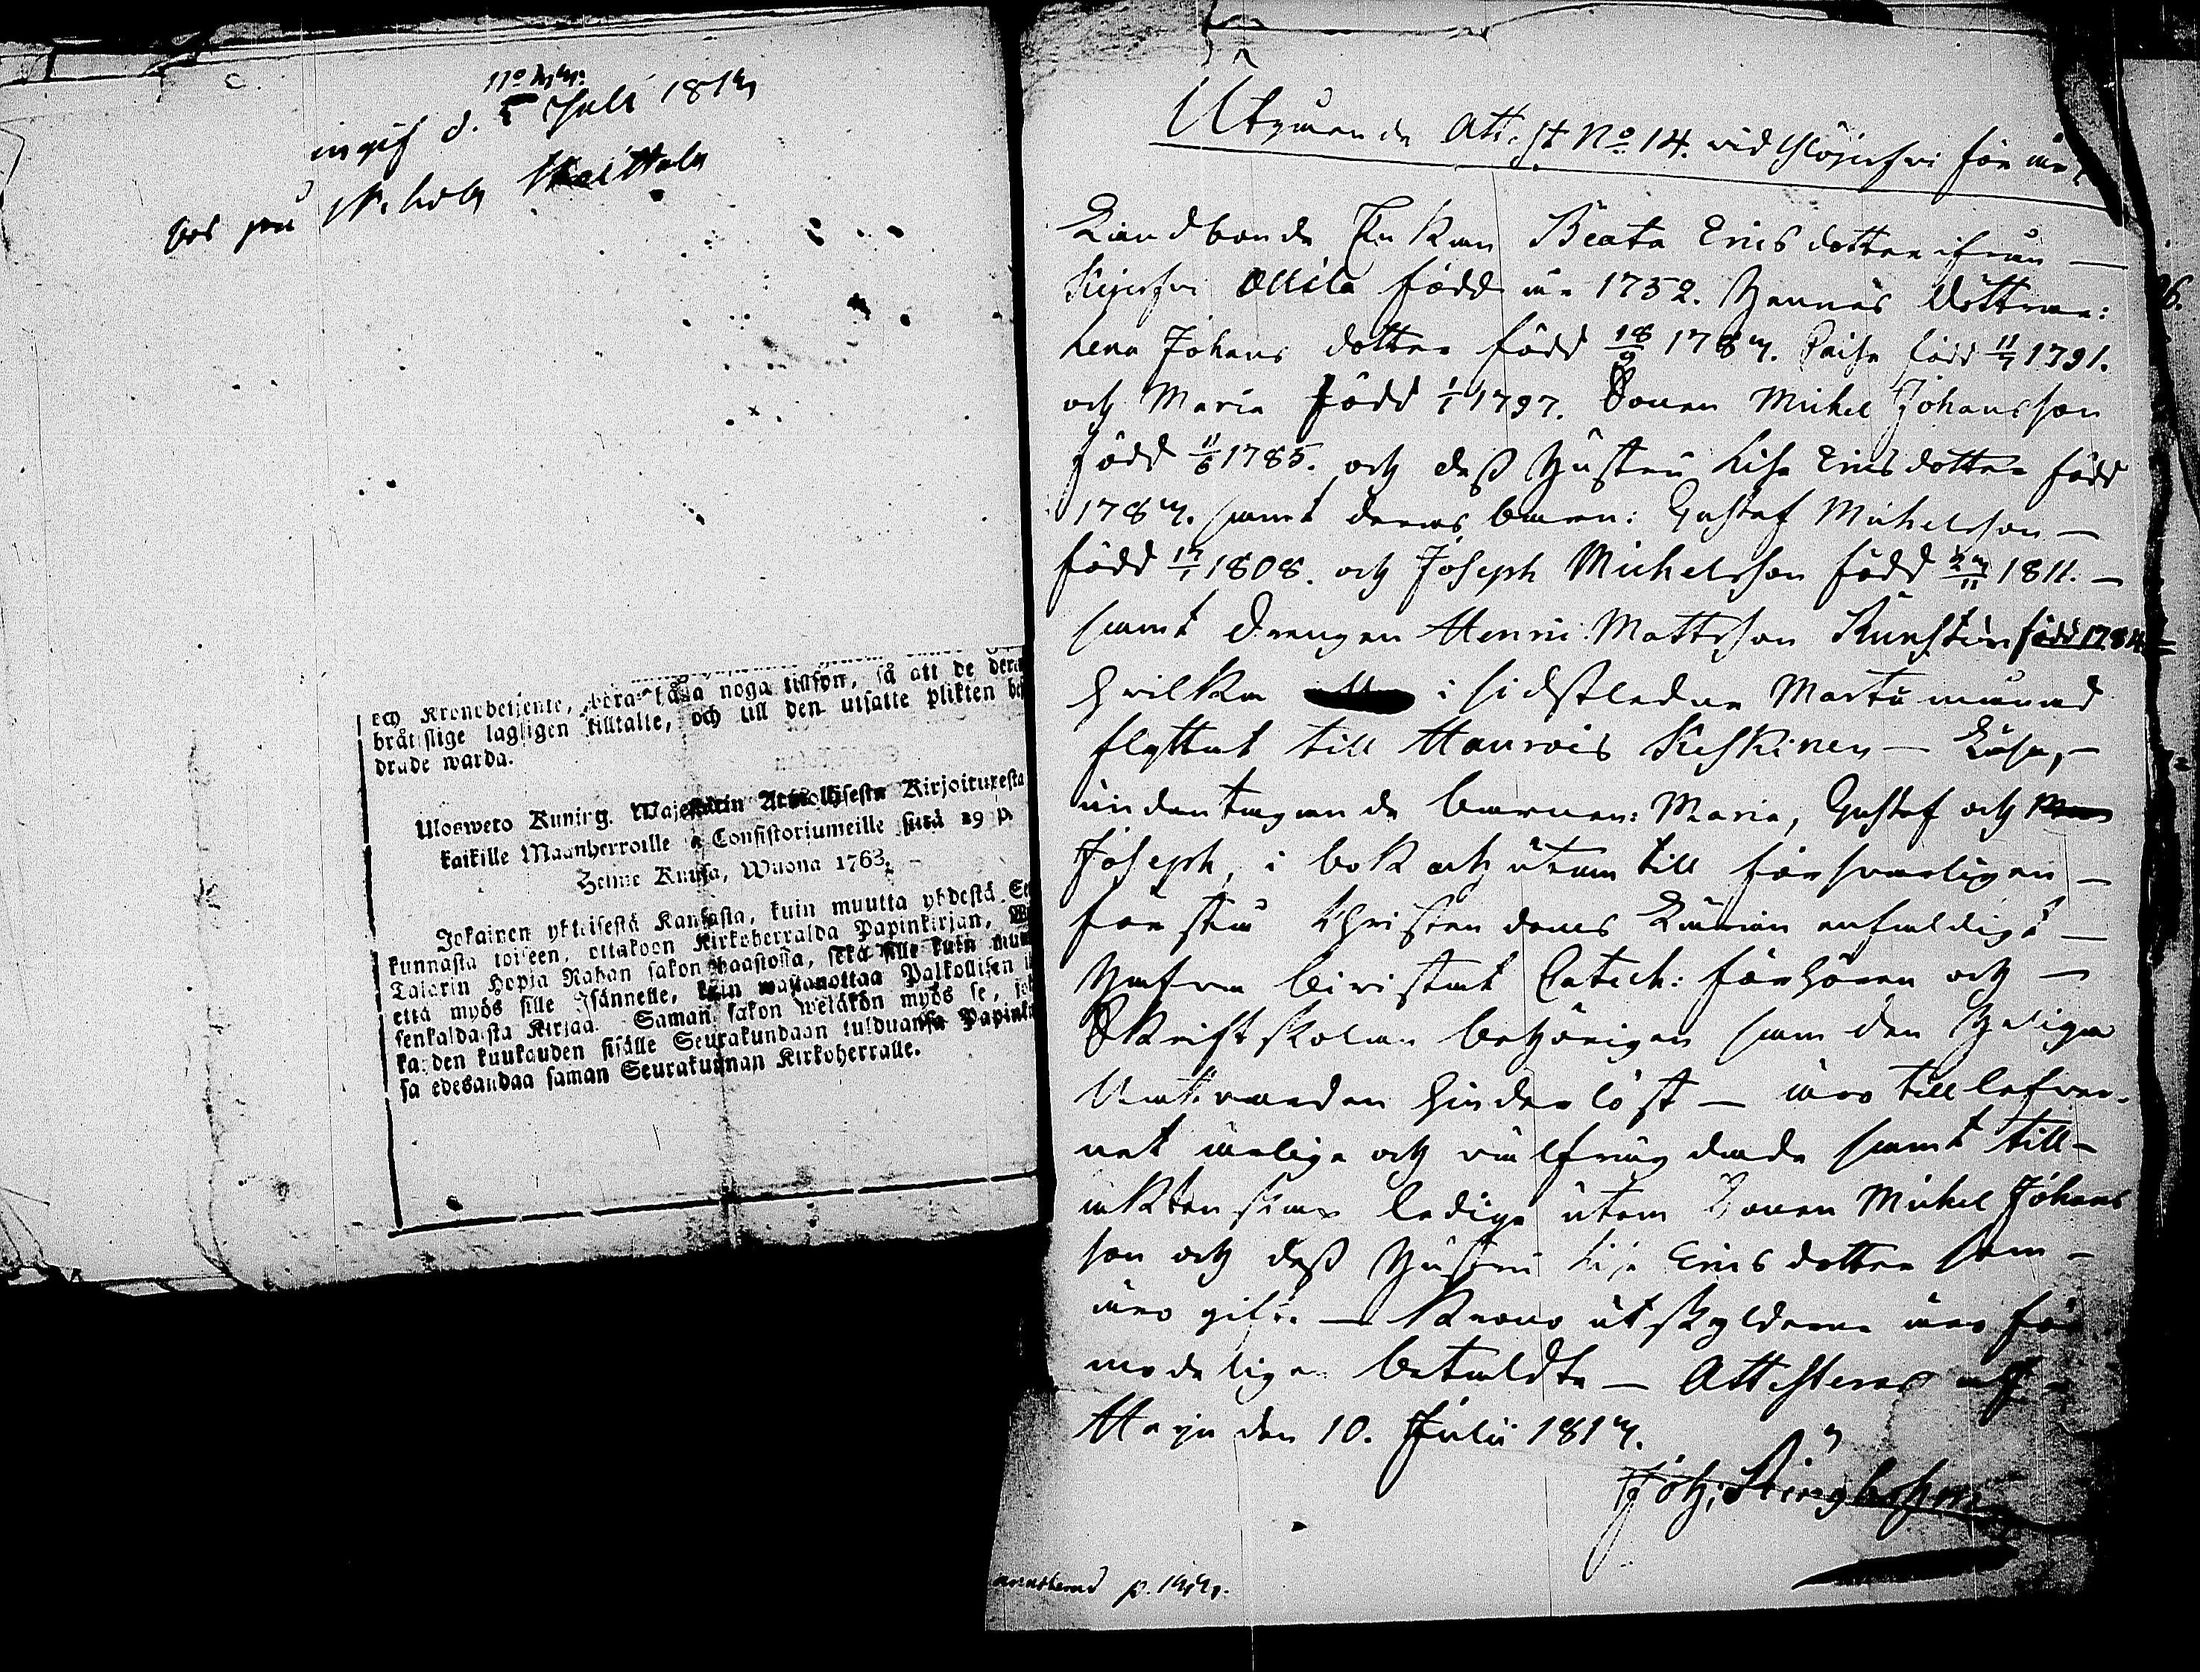 11:o
ingif d. 5 Juli 1817
och Kronobetjente, hafwa noga tillsyn, så att de
bråtslige lagligen tilltalte, och till den utsatte plikten
drade warda.
Ulosweto Kuning. Majestätin Armollisesta Kirjoituxesta
kaikille Maanherroille ja Consistoriumeille siitä 29 p.
Heinä Kuusa, Wuona 1763.
Jokainen yhteisestä Kansasta, kuin muutta yhdestä
kunnasta toiseen, ottakoon Kirkoherralda Papinkirjan,
Talarin Hopia Rahan sakon haastosta, sekä sille kuin
että myös sille Isännelle, kuin wastanottaa Palkollisen
senkaldaista Kirjaa. Saman sakon wetäkön myös se,
ka. den kuukauden sisälle Seurakundaan tulduansa
sa edesandaa saman Seurakunnan Kirkoherralle.
Utgående Attest No 14. vid för år
Landbonde Enkan Beata Ericsdotter ifrån
Ollila född år 1752. Hennes Döttrar:
Lena Johansdotter född 18/9 1787. Caisa född 11/7 1791.
och Maria född 1/1 1797. Sonen Michel Johansson
född 11/6 1785. och dess Hustru Lisa Ericsdotter född
1787. samt deras barn: Gustaf Michelsson
född 17/1 1808. och Joseph Michelsson född 27/11 1811.
samt Drengen Henric Mattsson född 1784
hvilka i sistledne Martii månad
flyttat till Keskinen
undantagande barnen: Maria, Gustaf och
Joseph, i bok och utan till försvarligen
förstå Christendoms Läran enfaldigt
Hafva bevistat Catech: förhören och
Skriftskolan behörigen samt den Heliga
Nattvarden hinderlöst — äro till lefver-
net ärlige och välfrägdade samt till
äktenskap ledige utom Sonen Michel Johans
son och dess Hustru Lisa Ericsdotter som
äro gifte. — Krono utskylderne äro för
modeligen betaldte — Attesteras af
den 10. Julii 1817.
Joh: